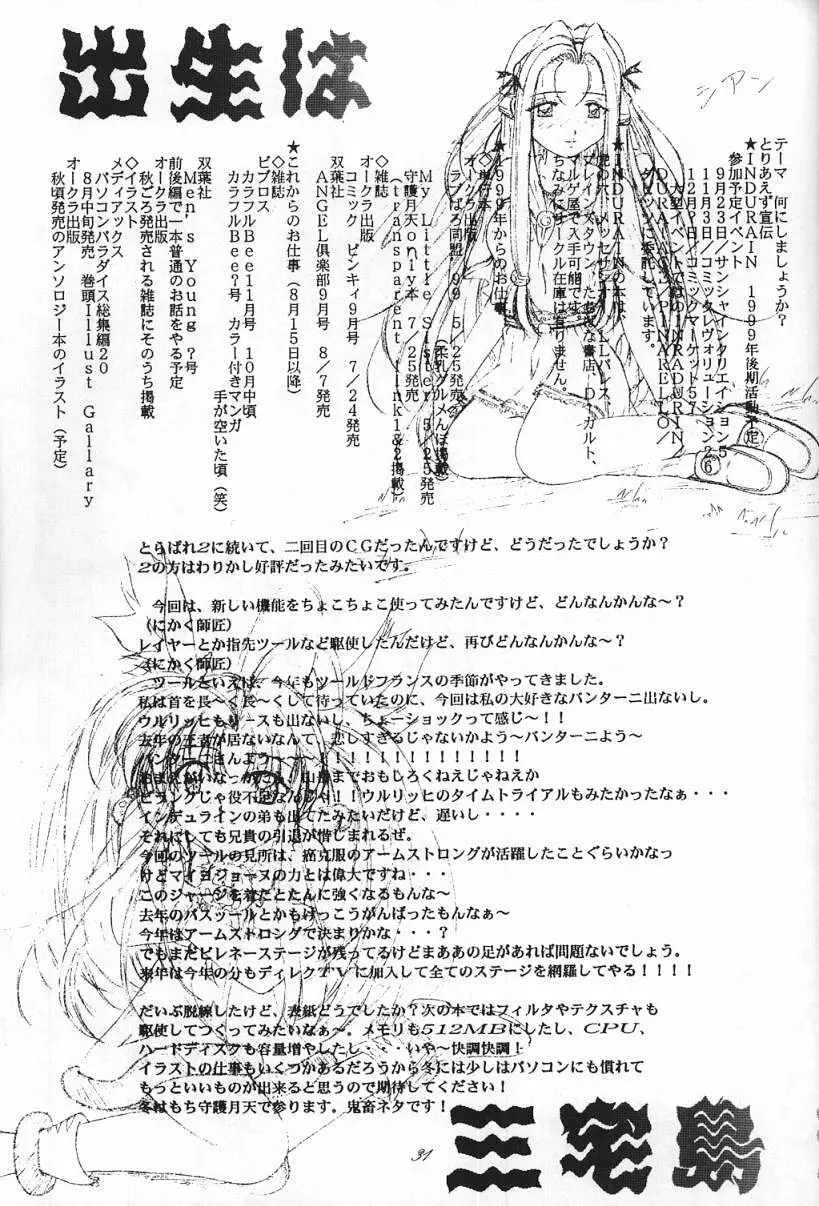 出生は
シアン
テーマ 何にしましょうか?
とりあえず宣伝
★INDURAIN 1999年後期活動予定
参加予定イベント
9月23日/サンシャインクリエイション5
11月3日/コミックレヴォリューション26
12月?日/コミックマーケット57
大型イベントではINDURAIN/
DURA-ACE/PINARELLO/
ダミッツに委託しています。
★INDURAINの本は、
虎の穴、メッセサンオー、LLパレス、
ブレインズタウン、たちばな書店、D-カルト、
マルゲ屋で入手可能です。
ちなみにサークル在庫は有りません。
★1999年からのお仕事
◇単行本
オークラ出版
ラブぱろ同盟'99 5/25発売
(柔乳グルメんぼ掲載)
My Little Sister 5/25発売
守護月天only本 7/25発売
(transparent link1&2掲載)
◇雑誌
オークラ出版
コミック ピンキィ9月号 7/24発売
双葉社
ANGEL倶楽部9月号 8/7発売
★これからのお仕事(8月15日以降)
◇雑誌
ビブロス
カラフルBee11月号 10月中頃
カラフルBee?号 カラー付きマンガ
手が空いた頃(笑)
双葉社
Men's Young ?号
前後編で一本普通のお話をやる予定
オークラ出版
秋ごろ発売される雑誌にそのうち掲載
◇イラスト
メディアックス
パソコンパラダイス総集編20
8月中旬発売 巻頭Illust Gallary
オークラ出版
秋頃発売のアンソロジー本のイラスト(予定)
とらぱれ2に続いて、二回目のCGだったんですけど、どうだったでしょうか?
2の方はわりかし好評だったみたいです。
今回は、新しい機能をちょこちょこ使ってみたんですけど、どんなんかんな~?
(にかく師匠)
レイヤーとか指先ツールなど駆使したんだけど、再びどんなんかんな~?
(にかく師匠)
ツールといえば、今年もツールドフランスの季節がやってきました。
私は首を長~く長~くして待っていたのに、今回は私の大好きなバンターニ出ないし。
ウルリッヒもリースも出ないし、ちょーショックって感じ~!!
去年の王者が居ないなんて、悲しすぎるじゃないかよう~バンターニよう~
バンターニさんよう~~~!!!!!!!!!!!!!!
おまえがいなっかたら、山岳までおもしろくねえじゃねえか
ビランクじゃ役不足なんじゃ!!ウルリッヒのタイムトライアルもみたかったなぁ・・・
インデュラインの弟も出てたみたいだけど、遅いし・・・・
それにしても兄貴の引退が惜しまれるぜ。
今回のツールの見所は、癌克服のアームストロングが活躍したことぐらいかなっ
けどマイヨジョーヌの力とは偉大ですね・・・
このジャージを着たとたんに強くなるもんな~
去年のバスツールとかもけっこうがんばったもんなぁ~
今年はアームストロングで決まりかな・・・?
でもまだピレネーステージが残ってるけどまああの足があれば問題ないでしょう。
来年は今年の分もディレクTVに加入して全てのステージを網羅してやる!!!!
だいぶ脱線したけど、表紙どうでしたか?次の本ではフィルタやテクスチャも
駆使してつくってみたいなぁ~。メモリも512MBにしたし、CPU、
ハードディスクも容量増やしたし・・・いや~快調快調!
イラストの仕事もいくつかあるだろうから冬には少しはパソコンにも慣れて
もっといいものが出来ると思うので期待してください!
冬はもち守護月天で参ります。鬼畜ネタです!
三宅島
31